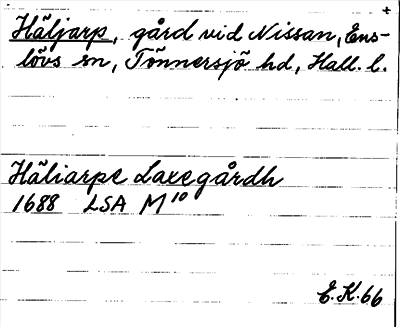 Häljarp, gård vid Nissan, Ens-
lövs sn, Tönnersjö hd, Hall. l.
Häliarpe Laxegårdh
1688 LSA M¹⁰
E.K.66